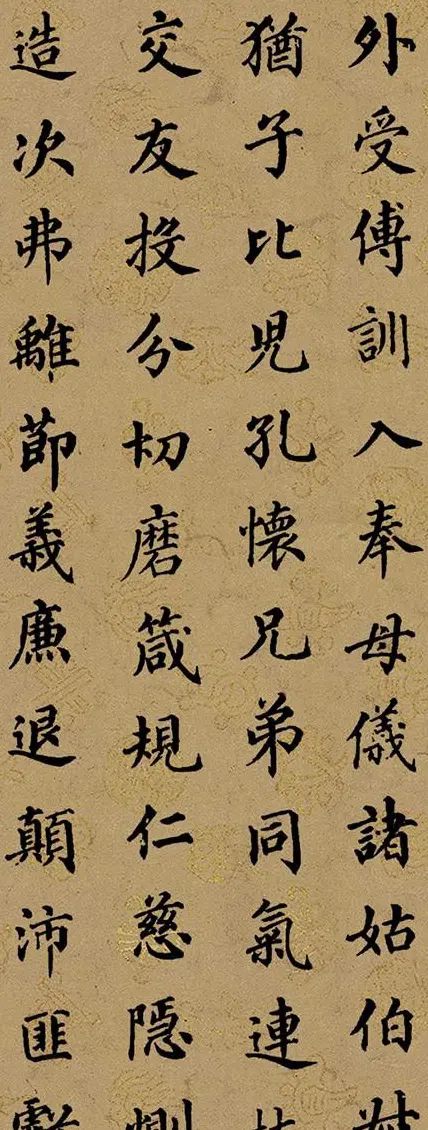 外受傅訓入奉母儀諸姑伯
猶子比兒孔懷兄弟同氣連
交友投分切磨箴規仁慈隱
造次弗離節義廉退顛沛匪